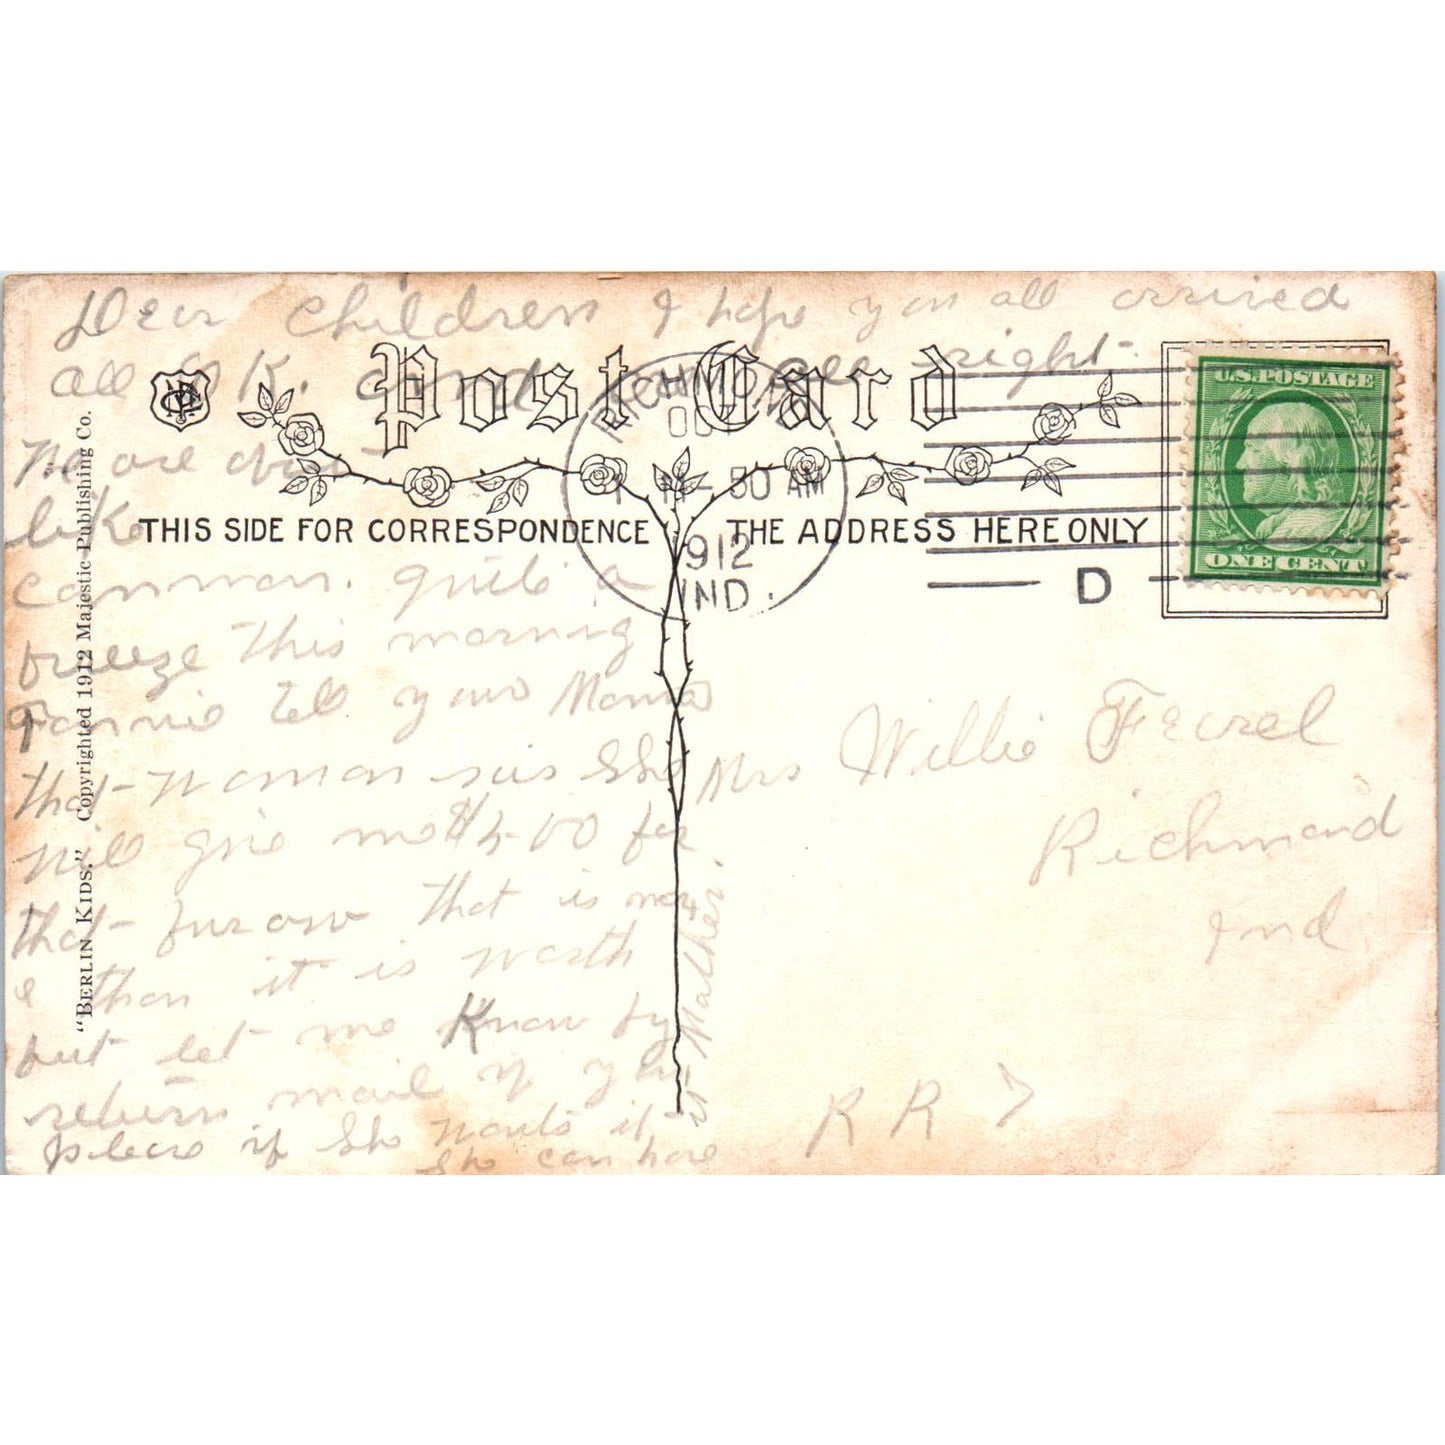 Dear Children I hope you all arrived
all O K. and all right.
We are about
like
common. quite a
freeze this morning
Fannie tell your Mama
that woman sais she
will give me $4.00 for
that that is more
than it is worth
but let me Know by
return mail if you
please if she wants it
she can have
it Mather.
Post Card
THIS SIDE FOR CORRESPONDENCE
THE ADDRESS HERE ONLY
RICHMOND
OCT
30 AM
1912
IND.
D
U.S. POSTAGE
ONE CENT
Mrs Willie
Richmond
Ind
R R 7
"BERLIN KIDS." Copyrighted 1912 Majestic Publishing Co.